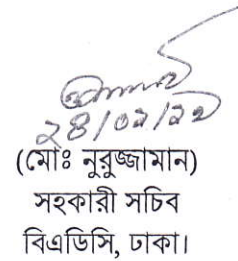 ২৪/০২/২২
(মোঃ নুরুজ্জামান)
সহকারী সচিব
বিএডিসি, ঢাকা।